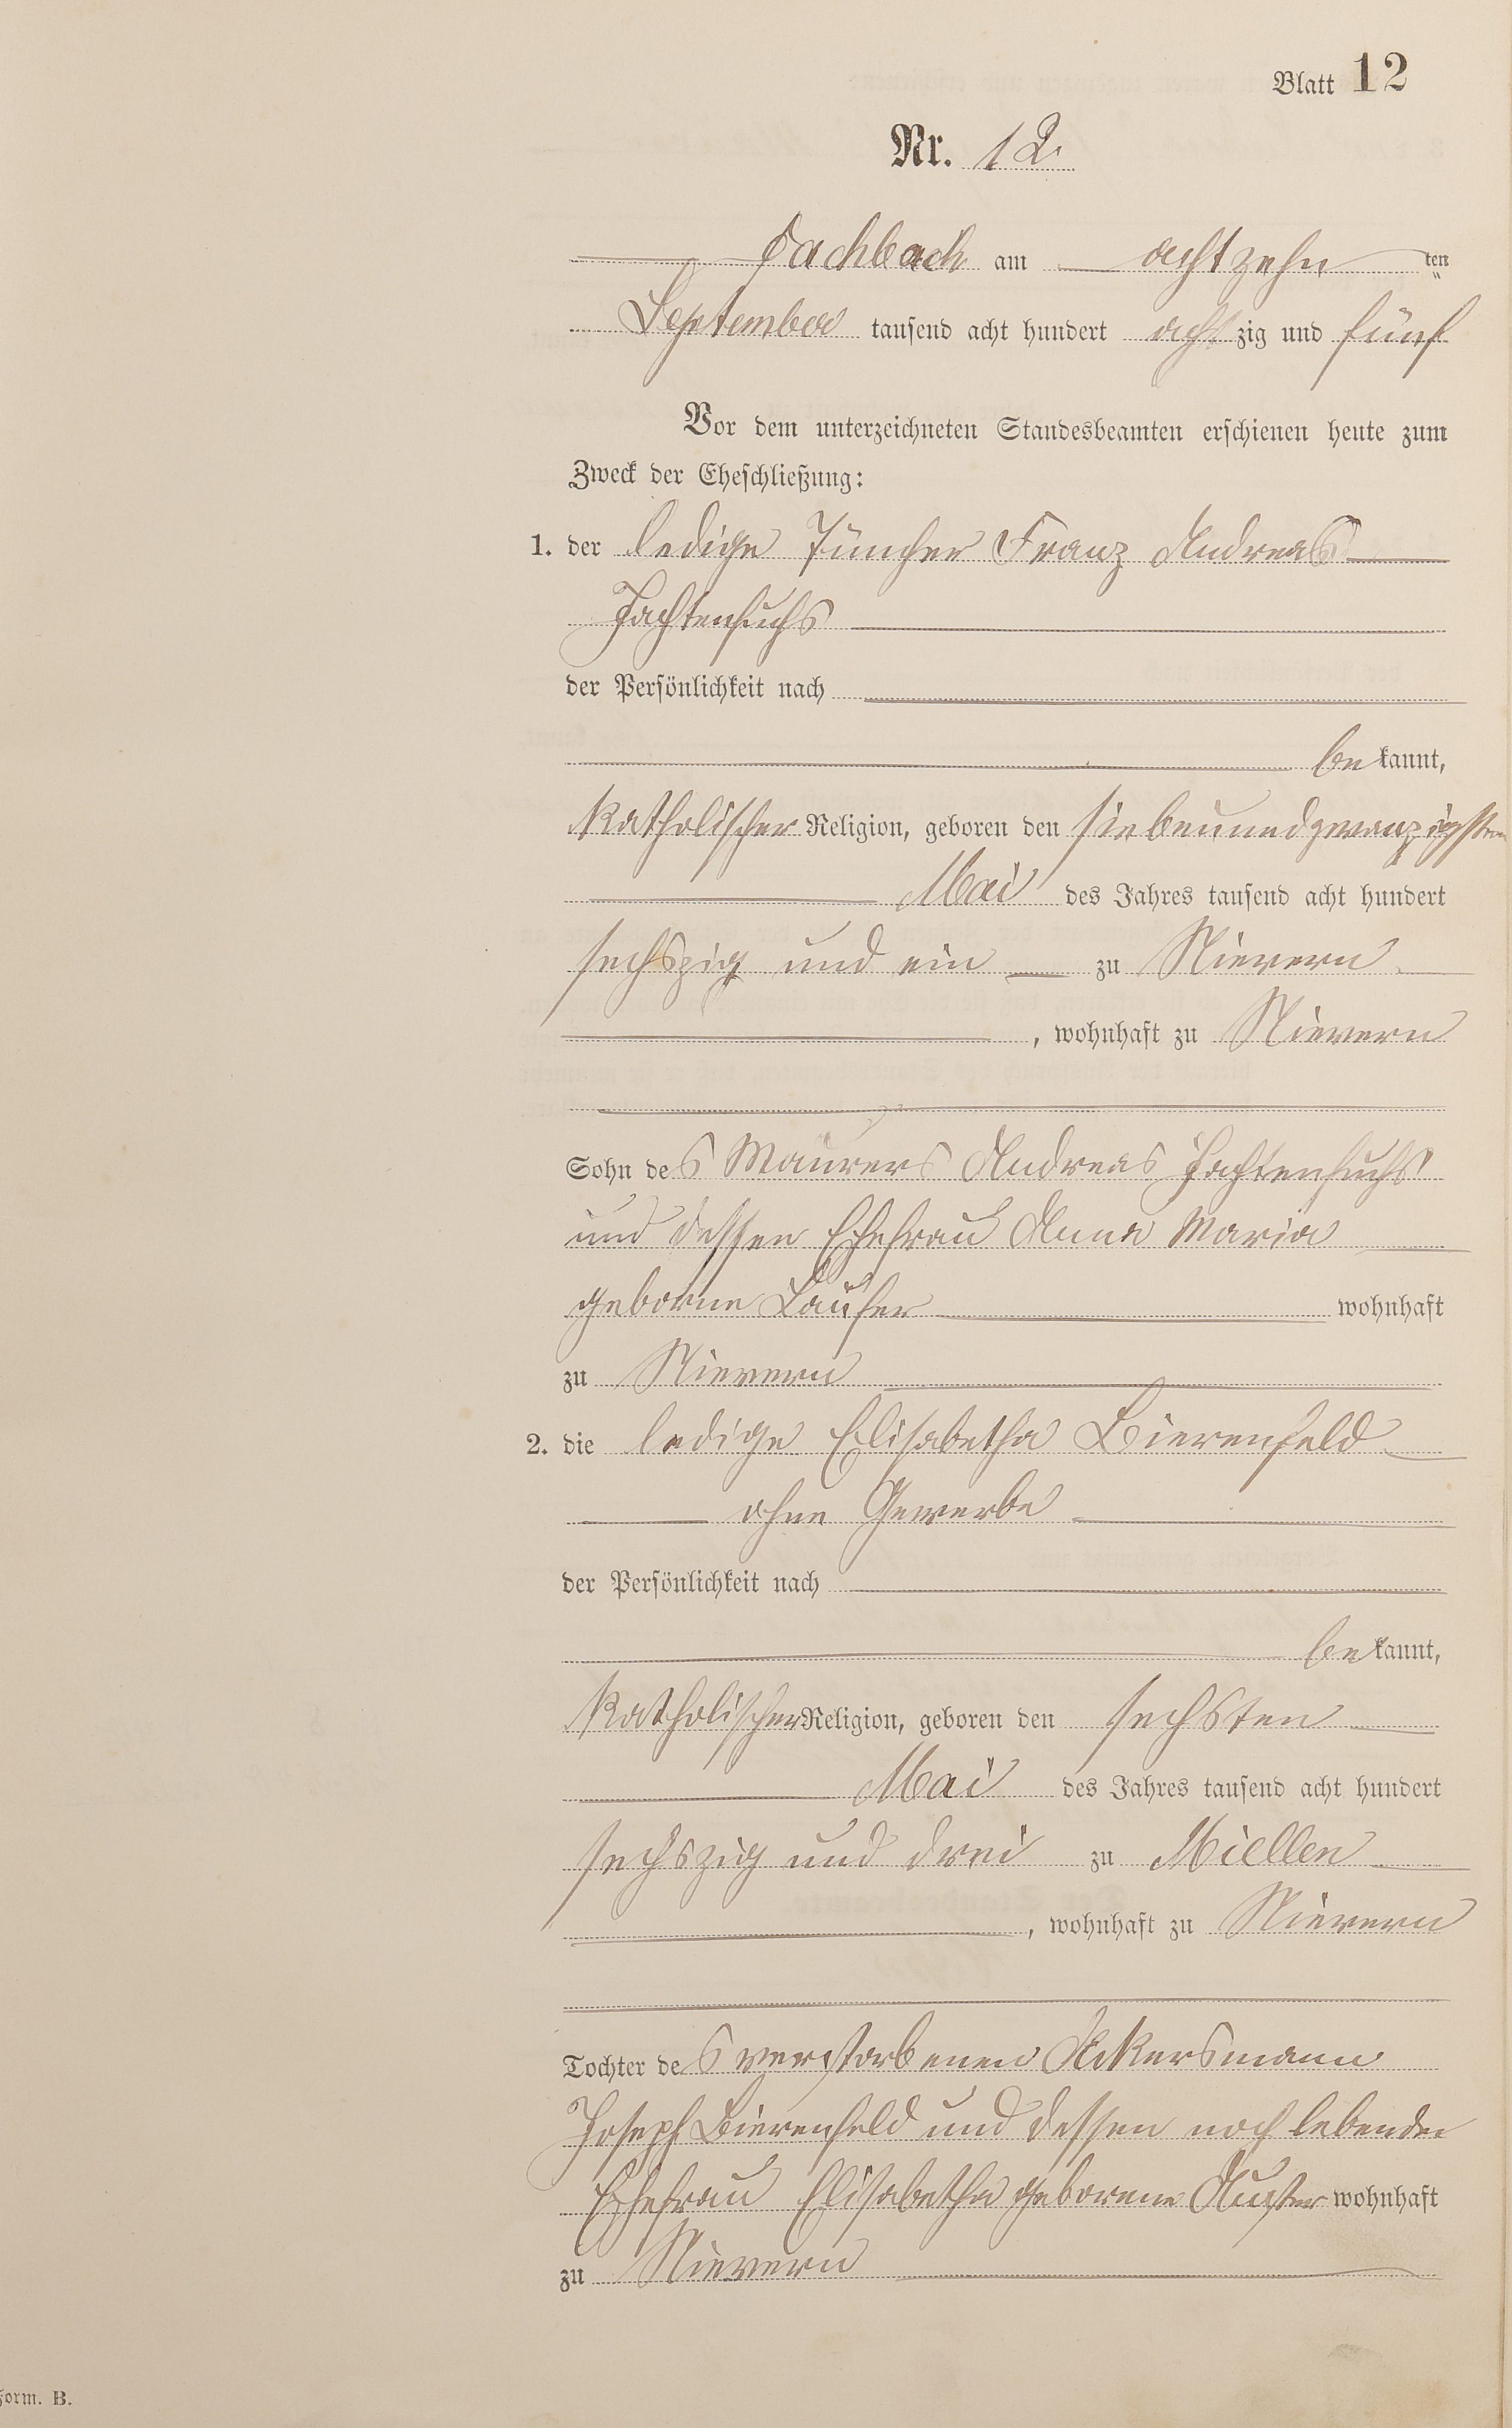 Blatt 12
Nr. 12.
Fachbach am achtzehn ten
September tausend acht hundert acht zig und fünf
Vor dem unterzeichneten Standesbeamten erschienen heute zum
Zweck der Eheschließung:
1. der ledige Tüncher Franz Andreas
Fachtenfuchs
der Persönlichkeit nach
be kannt,
katholischer Religion, geboren den siebenundzwanzigsten
Mai des Jahres tausend acht hundert
sechszig und ein zu Nievern
, wohnhaft zu Nievern
Sohn des Maurers Andreas
und dessen Ehefrau Anna Maria
geborne Laufer wohnhaft
zu Nievern
2. die ledige Elisabetha Bierenfeld
ohne Gewerbe
der Persönlichkeit nach
be kannt,
katholischer Religion, geboren den sechsten
Mai des Jahres tausend acht hundert
sechszig und drei zu Miellen
, wohnhaft zu Nievern
Tochter des verstorbenen Ackersmann
Joseph Bierenfeld und dessen noch lebenden
Ehefrau Elisabetha geborene wohnhaft
zu Nievern
Form. B.